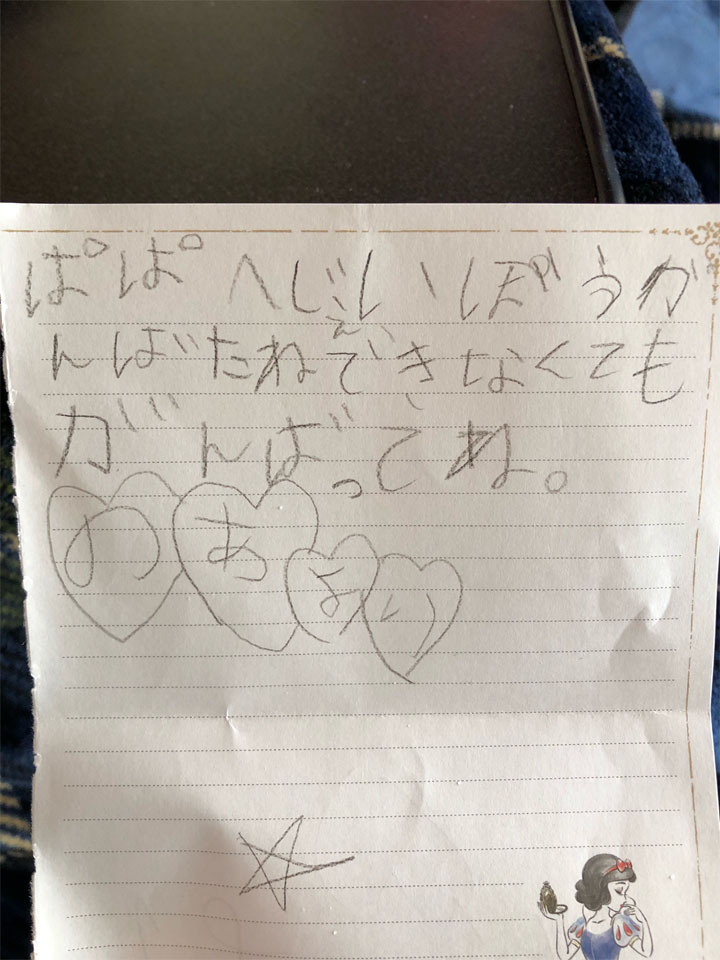 ぱぱ へじしいぼうが
んばたねできなくても
がんばってね。
のあより